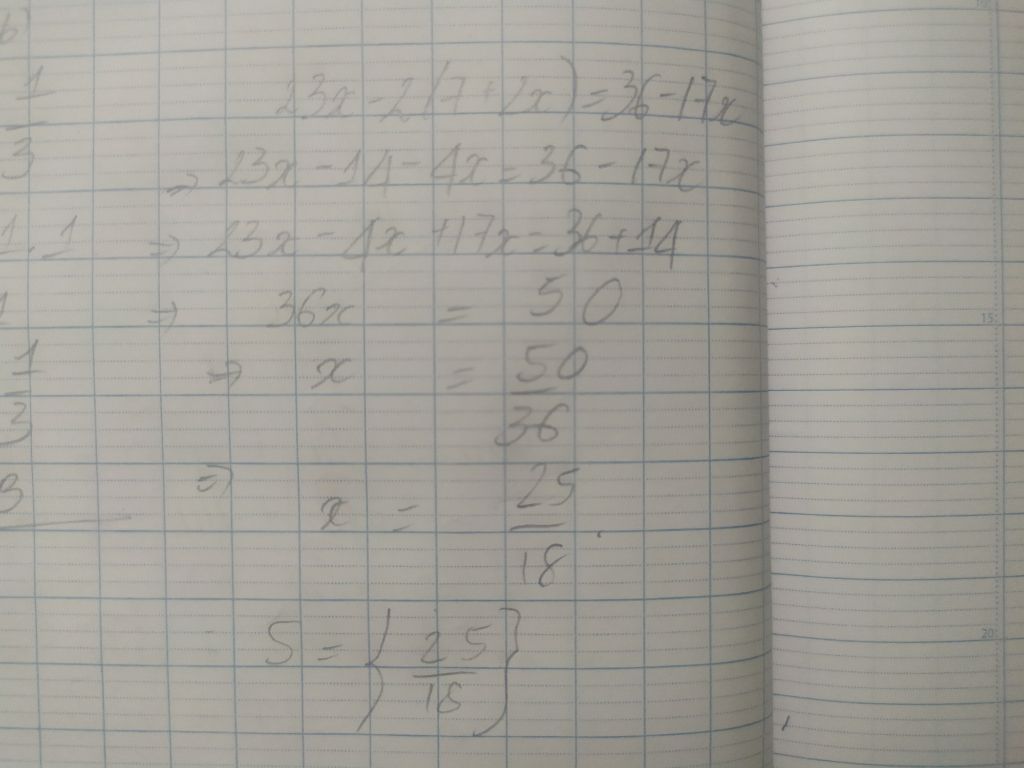 b)
1
3
1.1
1
1
3
3
23x - 2(7 + 2x) = 36 - 17x
=> 23x - 14 - 4x = 36 - 17x
=> 23x - 4x + 17x = 36 + 14
=> 36x = 50
=> x = 50/36
=> x = 25/18.
S = {25/18}
15
20